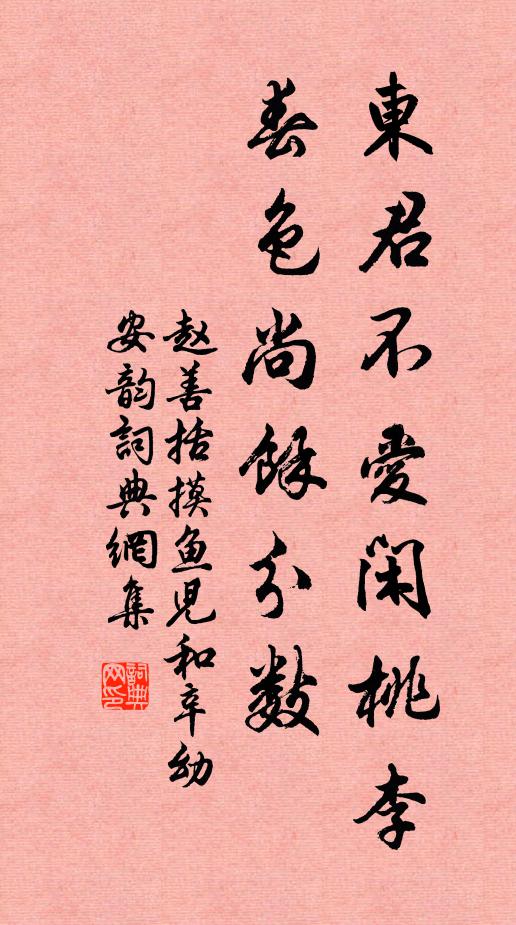 東君不愛閑桃李
春色尚餘分數
赵善括摸鱼児和辛幼
安韵詞典網集
詞典网印